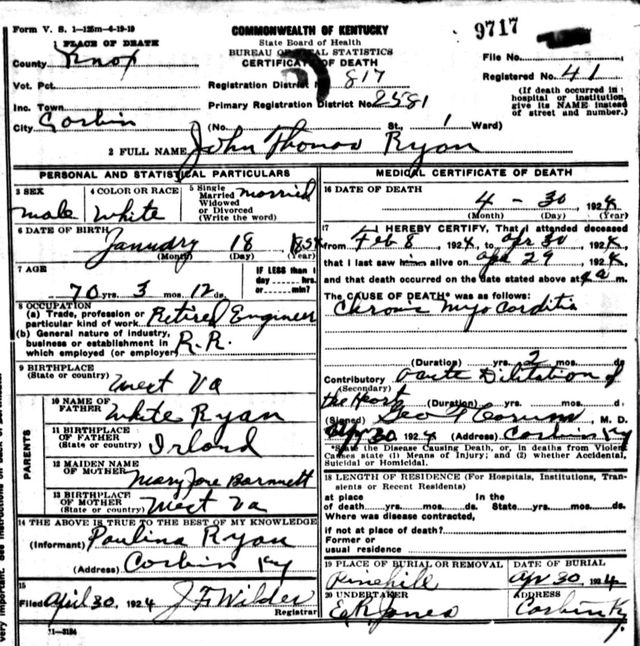 Form V. S. 1—125m—4-19-19
COMMONWEALTH OF KENTUCKY
9717
PLACE OF DEATH
State Board of Health
BUREAU OF VITAL STATISTICS
CERTIFICATE OF DEATH
County Knox
File No.
Registration District No. 817
Registered No. 41
Vot. Pct.
(If death occurred in a hospital or institution, give its NAME instead of street and number.)
Inc. Town
Primary Registration District No. 2581
City Corbin (No. St., Ward)
2 FULL NAME John Thomas Ryan
PERSONAL AND STATISTICAL PARTICULARS
3 SEX
male
4 COLOR OR RACE
White
5 Single
Married
Widowed
or Divorced
(Write the word)
married
6 DATE OF BIRTH
January 18 1854
(Month) (Day) (Year)
7 AGE
70 yrs. 3 mos. 12 ds.
IF LESS than 1
day hrs.
or min?
8 OCCUPATION
(a) Trade, profession or
particular kind of work Retired Engineer
(b) General nature of industry,
business or establishment in
which employed (or employer) R.R.
9 BIRTHPLACE
(State or country)
West Va
PARENTS
10 NAME OF
FATHER White Ryan
11 BIRTHPLACE
OF FATHER
(State or country) Irland
12 MAIDEN NAME
OF MOTHER Mary Jane Barnnett
13 BIRTHPLACE
OF MOTHER
(State or country) West Va
14 THE ABOVE IS TRUE TO THE BEST OF MY KNOWLEDGE
(Informant) Paulina Ryan
(Address) Corbin Ky
15
Filed April 30, 1924 J F Wilder
Registrar
11—3184
MEDICAL CERTIFICATE OF DEATH
16 DATE OF DEATH
4 - 30, 1924
(Month) (Day) (Year)
17 I HEREBY CERTIFY, That I attended deceased
from Feb 8, 1924, to Apr 30 1924
that I last saw him alive on Apr 29, 1924
and that death occurred on the date stated above at 4 a m.
The CAUSE OF DEATH* was as follows:
Chronic Myocarditis
(Duration) yrs. 2 mos. ds.
Contributory Acute Dilitation of
(Secondary)
the Heart (Duration) yrs. mos. ds.
(Signed) Geo F Corum, M. D.
Apr 30 1924 (Address) Corbin Ky
*State the Disease Causing Death, or, in deaths from Violent
Causes state (1) Means of Injury; and (2) whether Accidental,
Suicidal or Homicidal.
18 LENGTH OF RESIDENCE (For Hospitals, Institutions, Transients or Recent Residents)
at place In the
of death yrs. mos. ds. State yrs. mos. ds.
Where was disease contracted,
if not at place of death?
Former or
usual residence
19 PLACE OF BURIAL OR REMOVAL
Pinehill
DATE OF BURIAL
Apr 30, 1924
20 UNDERTAKER
E R Jones
ADDRESS
Corbin Ky